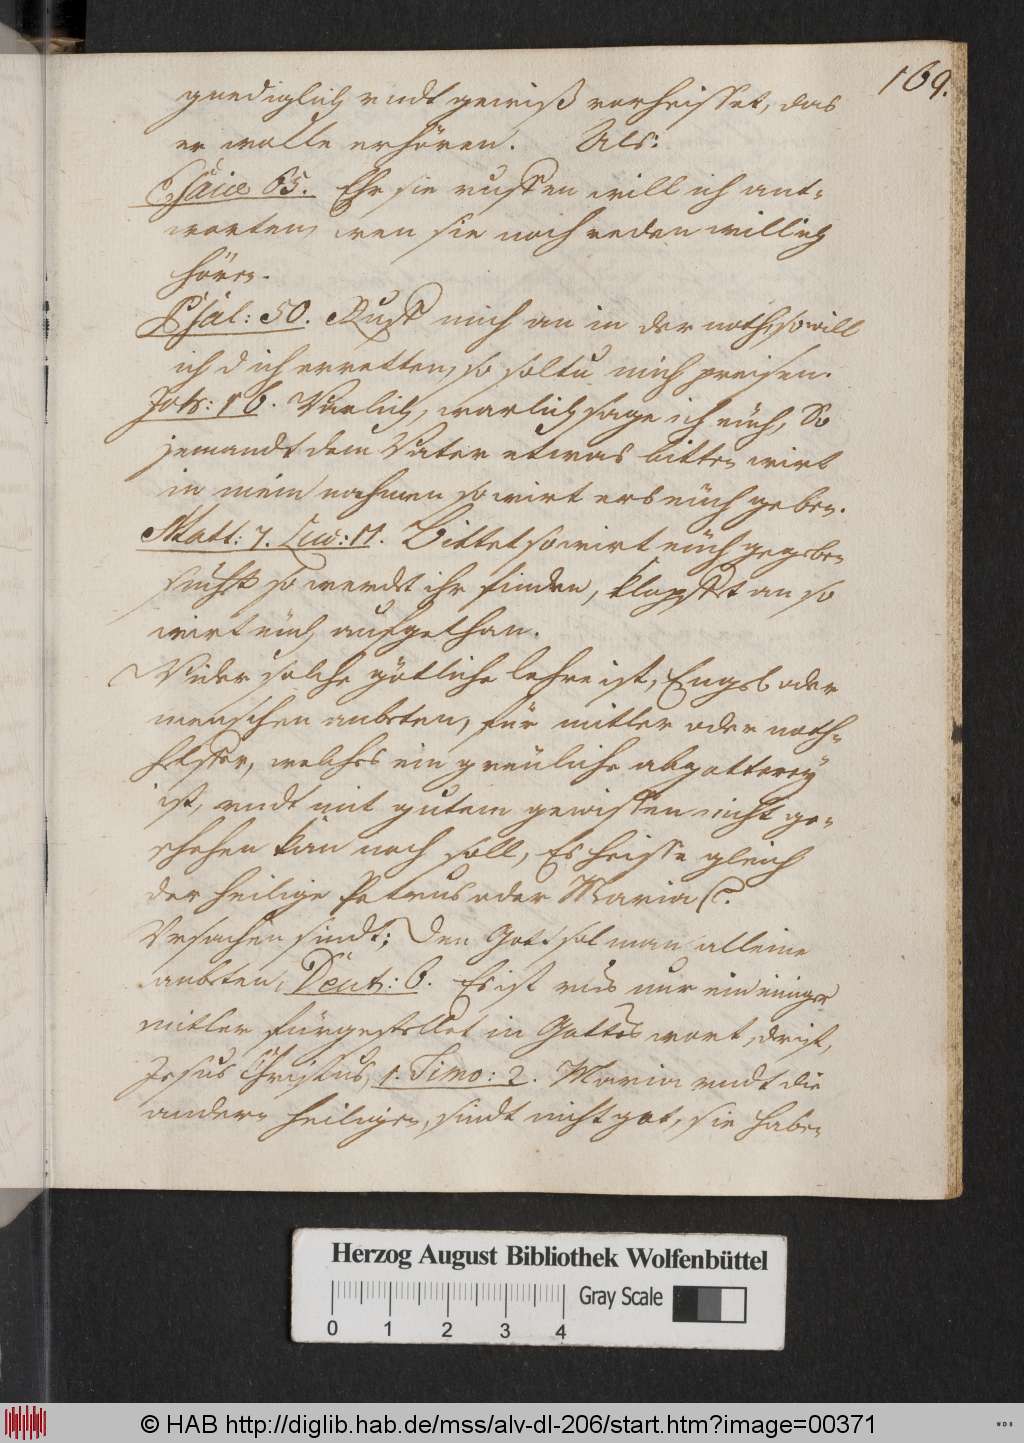 169.
gnediglich undt gewiß vorheisset, das
er wolle erhören. Als:
Esaie 65. Ehr sie ruffen will ich ant-
worten, wen sie noch reden will ich
hören.
Psal: 50. Ruff mich an in der noth, so will
ich dich erretten, so soltu mich preisen.
Joh: 16. Warlich, warlich sage ich eüch, So
jemandt dem Vater etwas bitten wirt
in mein nahmen so wirt ers eüch geben.
Matt: 7. Luc: 11. Bittet so wirt eüch gegeben
süchet so werdet ihr finden, klopffet an so
wirt eüch aufgethan.
Wider solche götliche lehre ist, Engel oder
menschen anbeten, für mitler oder noth-
helffer, welches ein greüliche abgotterey
ist, undt mit gutem gewissen nicht ge-
schehen kan noch soll, Es heisse gleich
der heilige Petrus oder Maria
Ursachen sindt; Den Got sol man alleine
anbeten, Deut: 6. Es ist uns nur ein einiger
mitler fürgestellet in Gottes wort, der ist,
Jesus Christus, 1. Timo: 2. Maria undt die
andern heiligen, sindt nicht got, sie haben
Herzog August Bibliothek Wolfenbüttel
0 1 2 3 4 Gray Scale
© HAB http://diglib.hab.de/mss/alv-dl-206/start.htm?image=00371